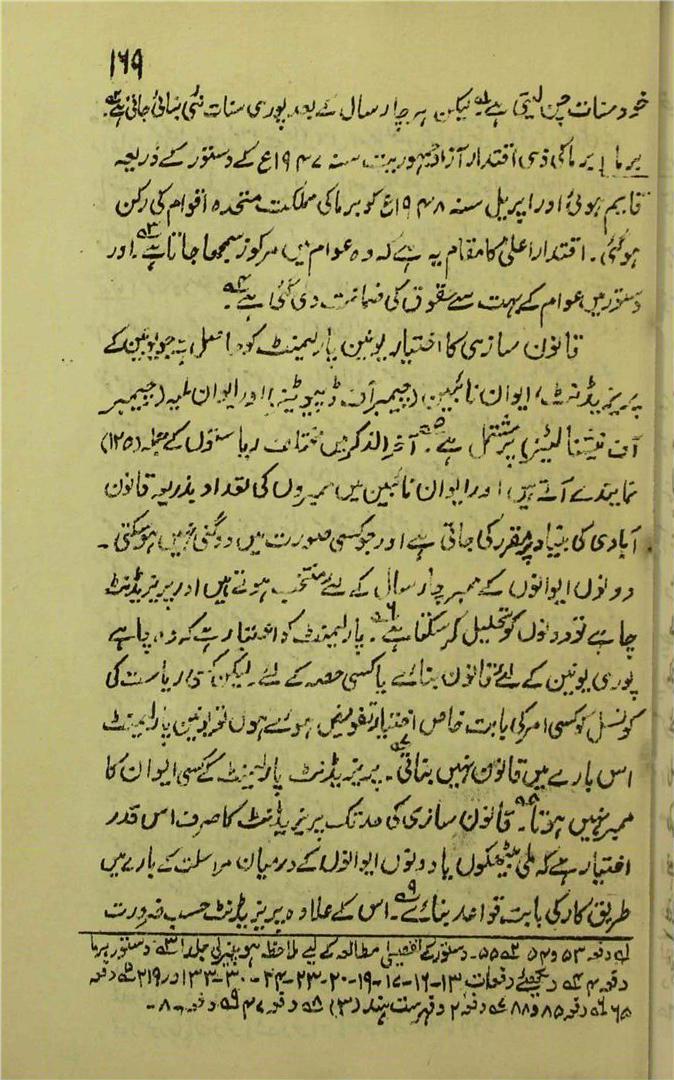 ۱۶۹
خود سنات چن لیتی ہے۔ لیکن ہر چار سال کے بعد پوری سنات نئی بنائی جاتی ہے۔
برما | برما کی ذی اقتدار آزاد جمہوریت سنہ ۱۹۴۷ع کے دستور کے ذریعہ
قایم ہوئی اور اپریل سنہ ۱۹۴۸ع کو برما کی مملکت متحدہ اقوام کی رکن
ہو گئی۔ اقتدار اعلیٰ کا مقام یہ ہے کہ وہ عوام میں مرکوز سمجھا جاتا ہے۔ اور
دستور میں عوام کے بہت سے حقوق کی ضمانت دی گئی ہے۔
قانون سازی کا اختیار یونین پارلیمنٹ کو حاصل ہے جو یونین کے
پریزیڈنٹ، ایوان نائبین (چیمبر آف ڈیپوٹیز) اور ایوان ملیہ (چیمبر
آف نیشنالٹیز) پر مشتمل ہے۔ آخر الذکر میں مختلف ریاستوں کے جملہ (۱۲۵)
نمایندے آتے ہیں اور ایوان نائبین میں ممبروں کی تعداد بذریعہ قانون
آبادی کی بنیاد پر مقرر کی جاتی ہے اور جو کسی صورت میں دوگنی نہیں ہوسکتی۔
دونوں ایوانوں کے ممبر چار سال کے لئے منتخب ہوتے ہیں اور پریزیڈنٹ
چاہے تو دونوں کو تحلیل کرسکتا ہے۔ پارلیمنٹ کو اختیار ہے کہ وہ چاہے
پوری یونین کے لئے قانون بنائے یا کسی حصہ کے لئے۔ لیکن کسی ریاست کی
کونسل کو کسی امر کی بابت خاص اختیار تفویض ہوئے ہوں تو یونین پارلیمنٹ
اس بارے میں قانون نہیں بناتی۔ پریزیڈنٹ پارلیمنٹ کے کسی ایوان کا
ممبر نہیں ہوتا۔ قانون سازی کی حد تک پریزیڈنٹ کا صرف اس قدر
اختیار ہے کہ ملی بیٹھکوں یا دونوں ایوانوں کے درمیان مراسلت کے بارے میں
طریق کار کی بابت قواعد بنائے۔ اس کے علاوہ پریزیڈنٹ حسب ضرورت
۱؎ دفعہ ۵۳ و ۵۴ ۲؎ ۵۵۔ دستور کے تفصیلی مطالعہ کے لیے ملاحظہ ہو جلد ۱ ۳؎ دستور برما
دفعہ ۴ ۴؎ دیکھیئے دفعات ۱۳-۱۶-۱۷-۱۹-۲۰-۲۳-۲۴-۳۰-۳۳ اور ۲۱۹ ۵؎ دفعہ
۶۵ ۶؎ دفعہ ۸۵ و ۸۸ ۷؎ دفعہ ۹۲ و فہرست (۳) ۸؎ دفعہ ۴۷ ۹؎ دفعہ ۸۰-